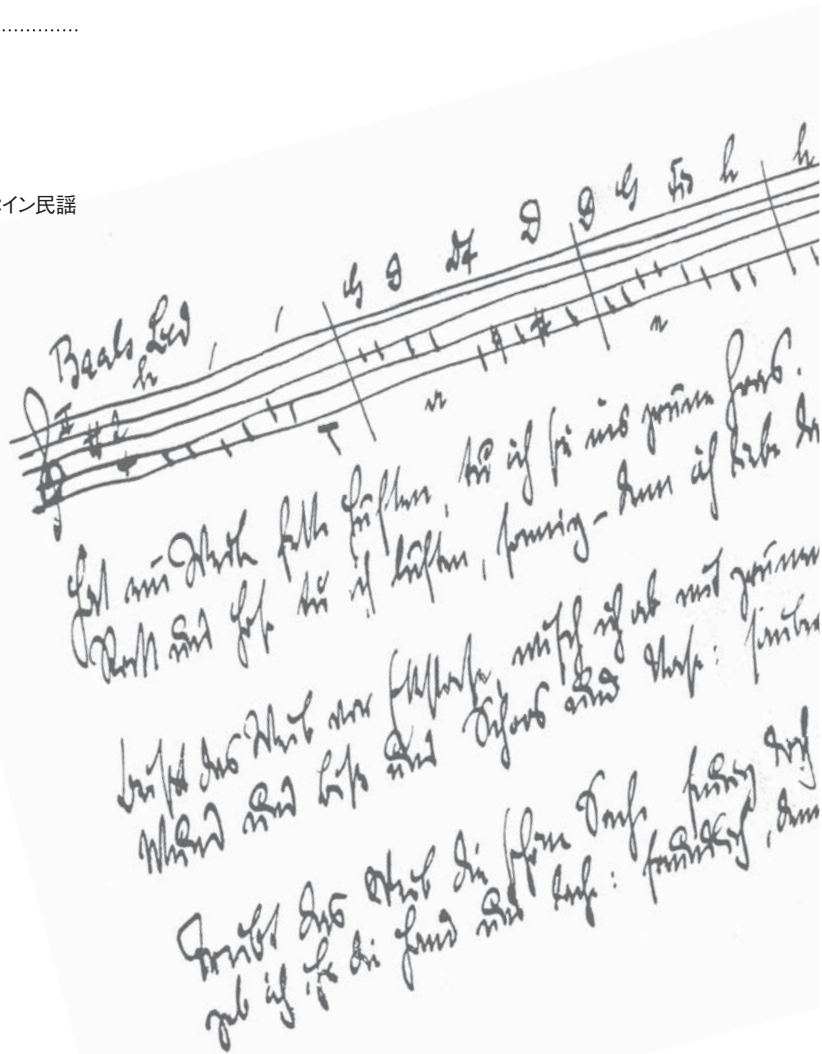 ……………
イン民謡
Baals Lied
Hat ein Weib fette Hüften, tu ich sie ins grüne Gras.
Rock und Hose tu ich lüften, sonnig – denn ich liebe
Beißt das Weib vor Ekstase, wisch ich ab mit grünem
Mund und Biß und Schoos und Nase: sauber
Treibt das Weib die schöne Sache feurig doch
geb ich ihr die Hand und lache: freundlich, denn